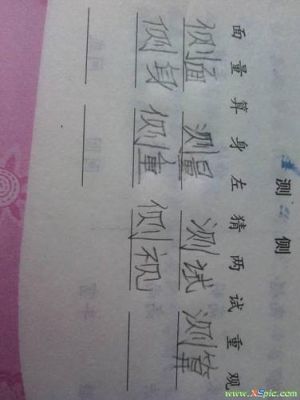 测 侧
面 量 算 身 左 猜 两 试 重 观
侧面 测量 测试 测算
侧身 侧重 侧视
www.XSpic.com